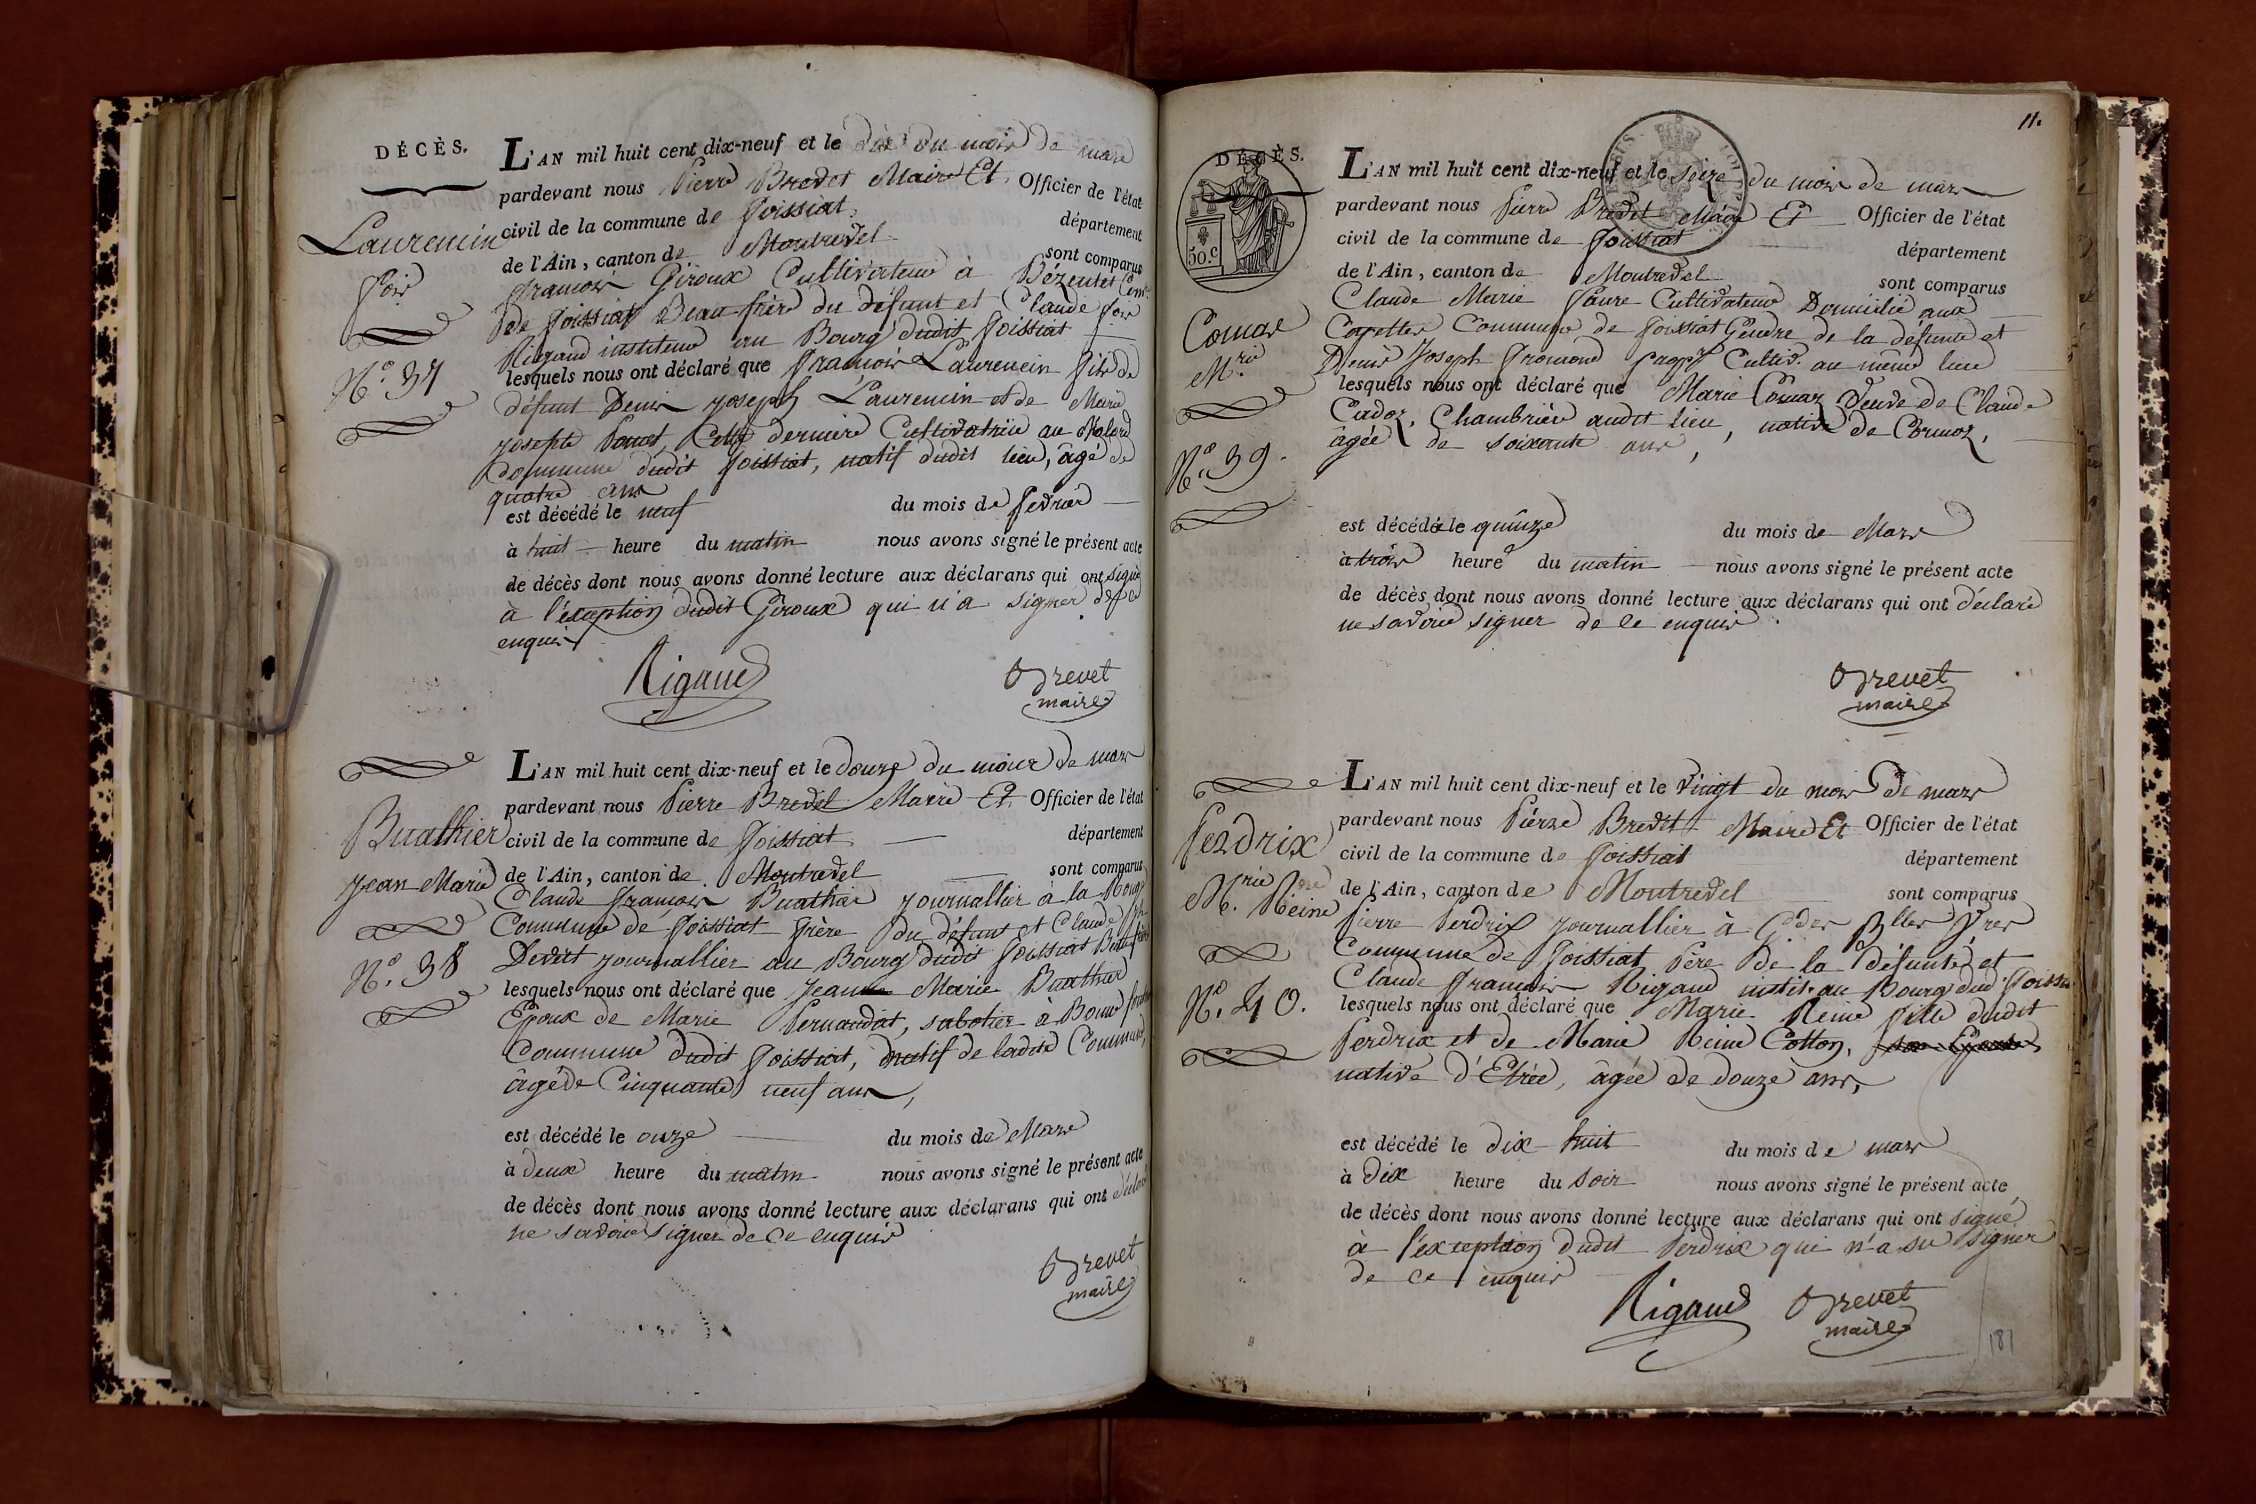 DÉCÈS.
L'AN mil huit cent dix-neuf et le dix du mois de mars
pardevant nous Pierre Brevet Maire Et Officier de l'état
civil de la commune de foissiat, département
de l'Ain, canton de Montrevel sont comparus
françois Giroux Cultivateur à Bézentet Com.
de foissiat Beau-frère du défunt et Claude fois
Rigaud instituteur au Bourg dudit foissiat
lesquels nous ont déclaré que françois Laurencin fils de
défunt Denis joseph Laurencin et de Marie
josephte Cette dernière Cultivatrice au
Commune dudit foissiat, natif dudit lieu, âgé de
quatre ans
est décédé le neuf du mois de fevrier
à huit heure du matin nous avons signé le présent acte
de décès dont nous avons donné lecture aux déclarans qui ont signé
à l'exception dudit Giroux qui n'a signer de ce
enquis
Rigaud
Brevet
maire
Laurencin
fois
N.º 37
L'AN mil huit cent dix-neuf et le douze du mois de mars
pardevant nous Pierre Brevet Maire Et Officier de l'état
civil de la commune de foissiat département
de l'Ain, canton de Montrevel sont comparus
Claude françois Buathier journallier à la
Commune de foissiat frère du défunt et Claude jph
Devert journallier au Bourg dudit foissiat Beau frère
lesquels nous ont déclaré que Jean Marie Buathier
Epoux de Marie Pernaudat, sabotier à
Commune dudit foissiat, natif de ladite Commune,
âgé de Cinquante neuf ans,
est décédé le onze du mois de Mars
à deux heure du matin nous avons signé le présent acte
de décès dont nous avons donné lecture aux déclarans qui ont déclaré
ne savoir signer de ce enquis
Brevet
maire
Buathier
jean Marie
N.º 38
11.
DÉCÈS.
50.C
L'AN mil huit cent dix-neuf et le seize du mois de mars
pardevant nous Pierre Brevet Maire Et Officier de l'état
civil de la commune de foissiat département
de l'Ain, canton de Montrevel sont comparus
Claude Marie faure Cultivateur Domicilié aux
Capettes Commune de foissiat Gendre de la défunte et
Denis Joseph fromont Cultiv. au même lieu
lesquels nous ont déclaré que Marie Comaz Veuve de Claude
Cadoz, Chambrière audit lieu, native de Cormoz,
âgée de soixante ans,
est décédée le quinze du mois de Mars
à trois heure du matin nous avons signé le présent acte
de décès dont nous avons donné lecture aux déclarans qui ont déclaré
ne savoir signer de ce enquis.
Brevet
maire
Comas
M.rie
N.º 39.
L'AN mil huit cent dix-neuf et le vingt du mois de mars
pardevant nous Pierre Brevet Maire Et Officier de l'état
civil de la commune de foissiat département
de l'Ain, canton de Montrevel sont comparus
Pierre Perdrix journallier à
Commune de foissiat Père de la défunte et
Claude françois Rigaud instit. au Bourg dud. foissiat
lesquels nous ont déclaré que Marie Reine fille dudit
Perdrix et de Marie Reine Cotton,
native d'Etrée, âgée de douze ans,
est décédé le dix huit du mois de mars
à dix heure du soir nous avons signé le présent acte
de décès dont nous avons donné lecture aux déclarans qui ont signé
à l'exception dudit Perdrix qui n'a su signer
de ce enquis
Rigaud
Brevet
maire
Perdrix
M.rie Reine
N.º 40.
181